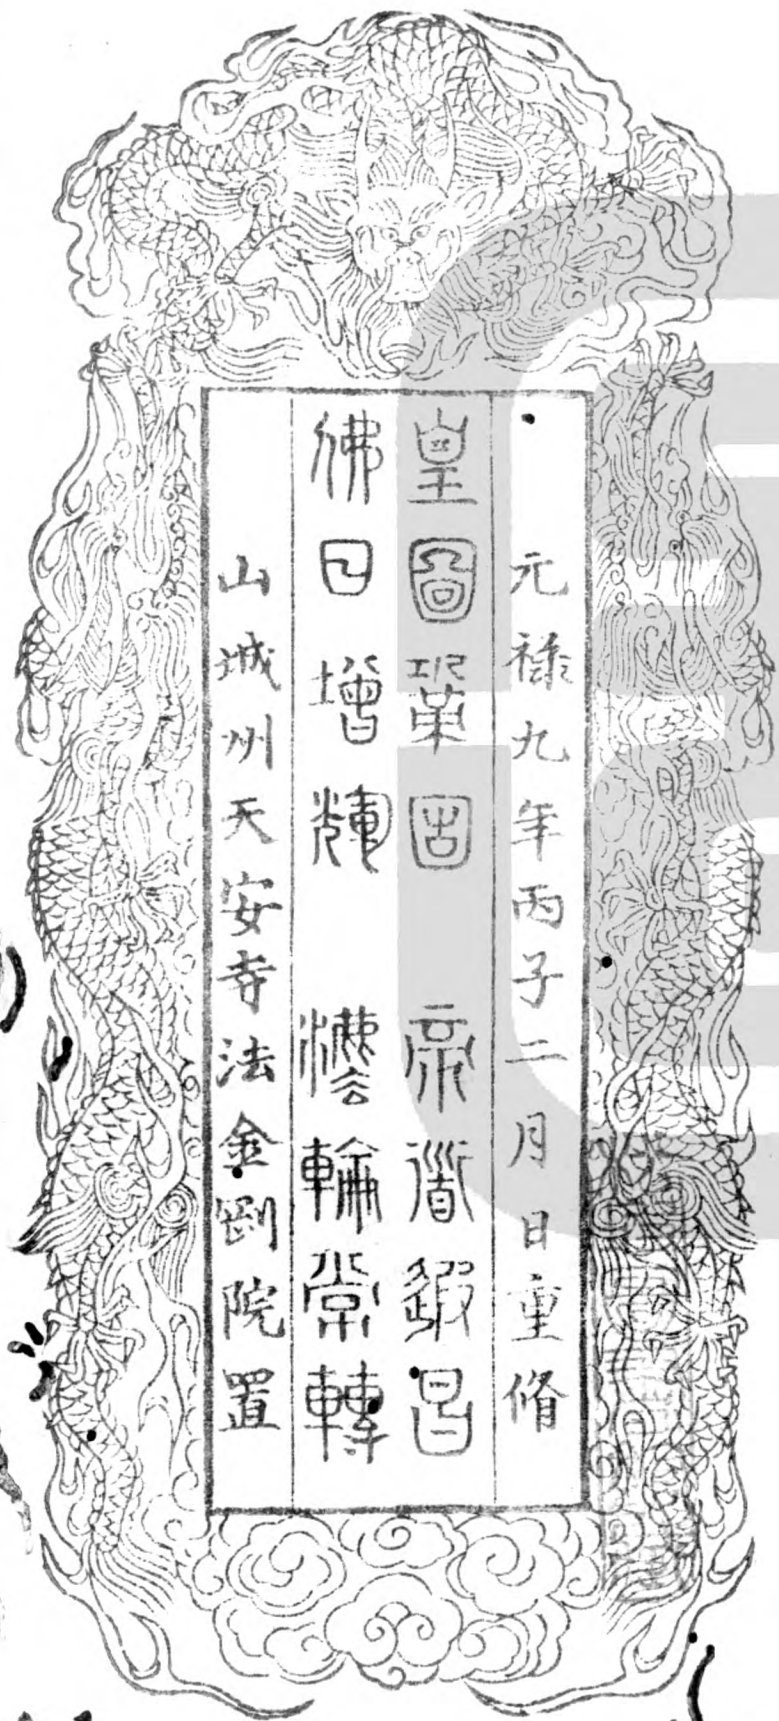 元祿九年丙子二月 日重脩
皇圖鞏固 帝道遐昌
佛日增輝 灋輪常轉
山城州天安寺法金剛院置